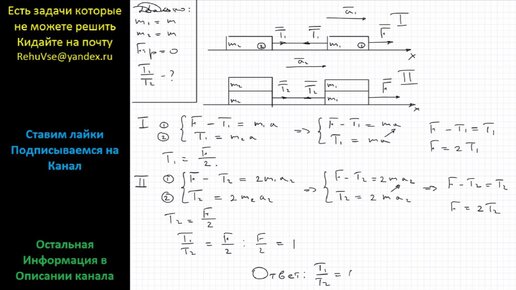 Есть задачи которые
не можете решить
Кидайте на почту
RehuVse@yandex.ru
Ставим лайки
Подписываемся на
Канал
Остальная
Информация в
Описании канала
Дано:
m₁ = m
m₂ = m
Fтр = 0
T₁/T₂ - ?
a₁ I
m₂ ② T₁ T₁ ① F
x
a₂ II
m₂ T₂ T₂ m₁ F
m₂ m₁
x
I ① { F - T₁ = m₁a => { F - T₁ = ma F - T₁ = T₁
② { T₁ = m₂a { T₁ = ma F = 2T₁
T₁ = F/2
II ① { F - T₂ = 2m₁a₂ => { F - T₂ = 2ma₂ => F - T₂ = T₂
② { T₂ = 2m₂a₂ { T₂ = 2ma₂ F = 2T₂
T₂ = F/2
T₁/T₂ = F/2 : F/2 = 1
Ответ: T₁/T₂ =